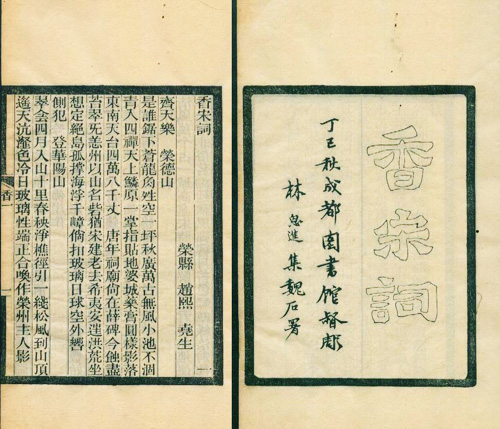 香宋詞
丁巳秋成都圖書館督彫
林思進集魏石署
香宋詞
榮縣 趙熙 堯生
齊天樂 榮德山
是誰鋸下蒼龍肉空一坪秋廣萬古無風小池不涸
青入四禪天上鱗原一掌指貼地婆城藥齊圓樣影落
東南天台四萬八千丈 唐年祠廟尚在薛碑今蝕盡
苔翠旡恙州以山名砦猶宋建老去希夷安洪荒坐
想定絕島孤撐海浮千嶂倘扣玻璃日球空外響
側犯 登華陽山
翠四月入山十里春秧淨樵徑引一綫松風到山頂
天沆瀣色冷日玻璃性端正合喚作榮州主人影
香
一